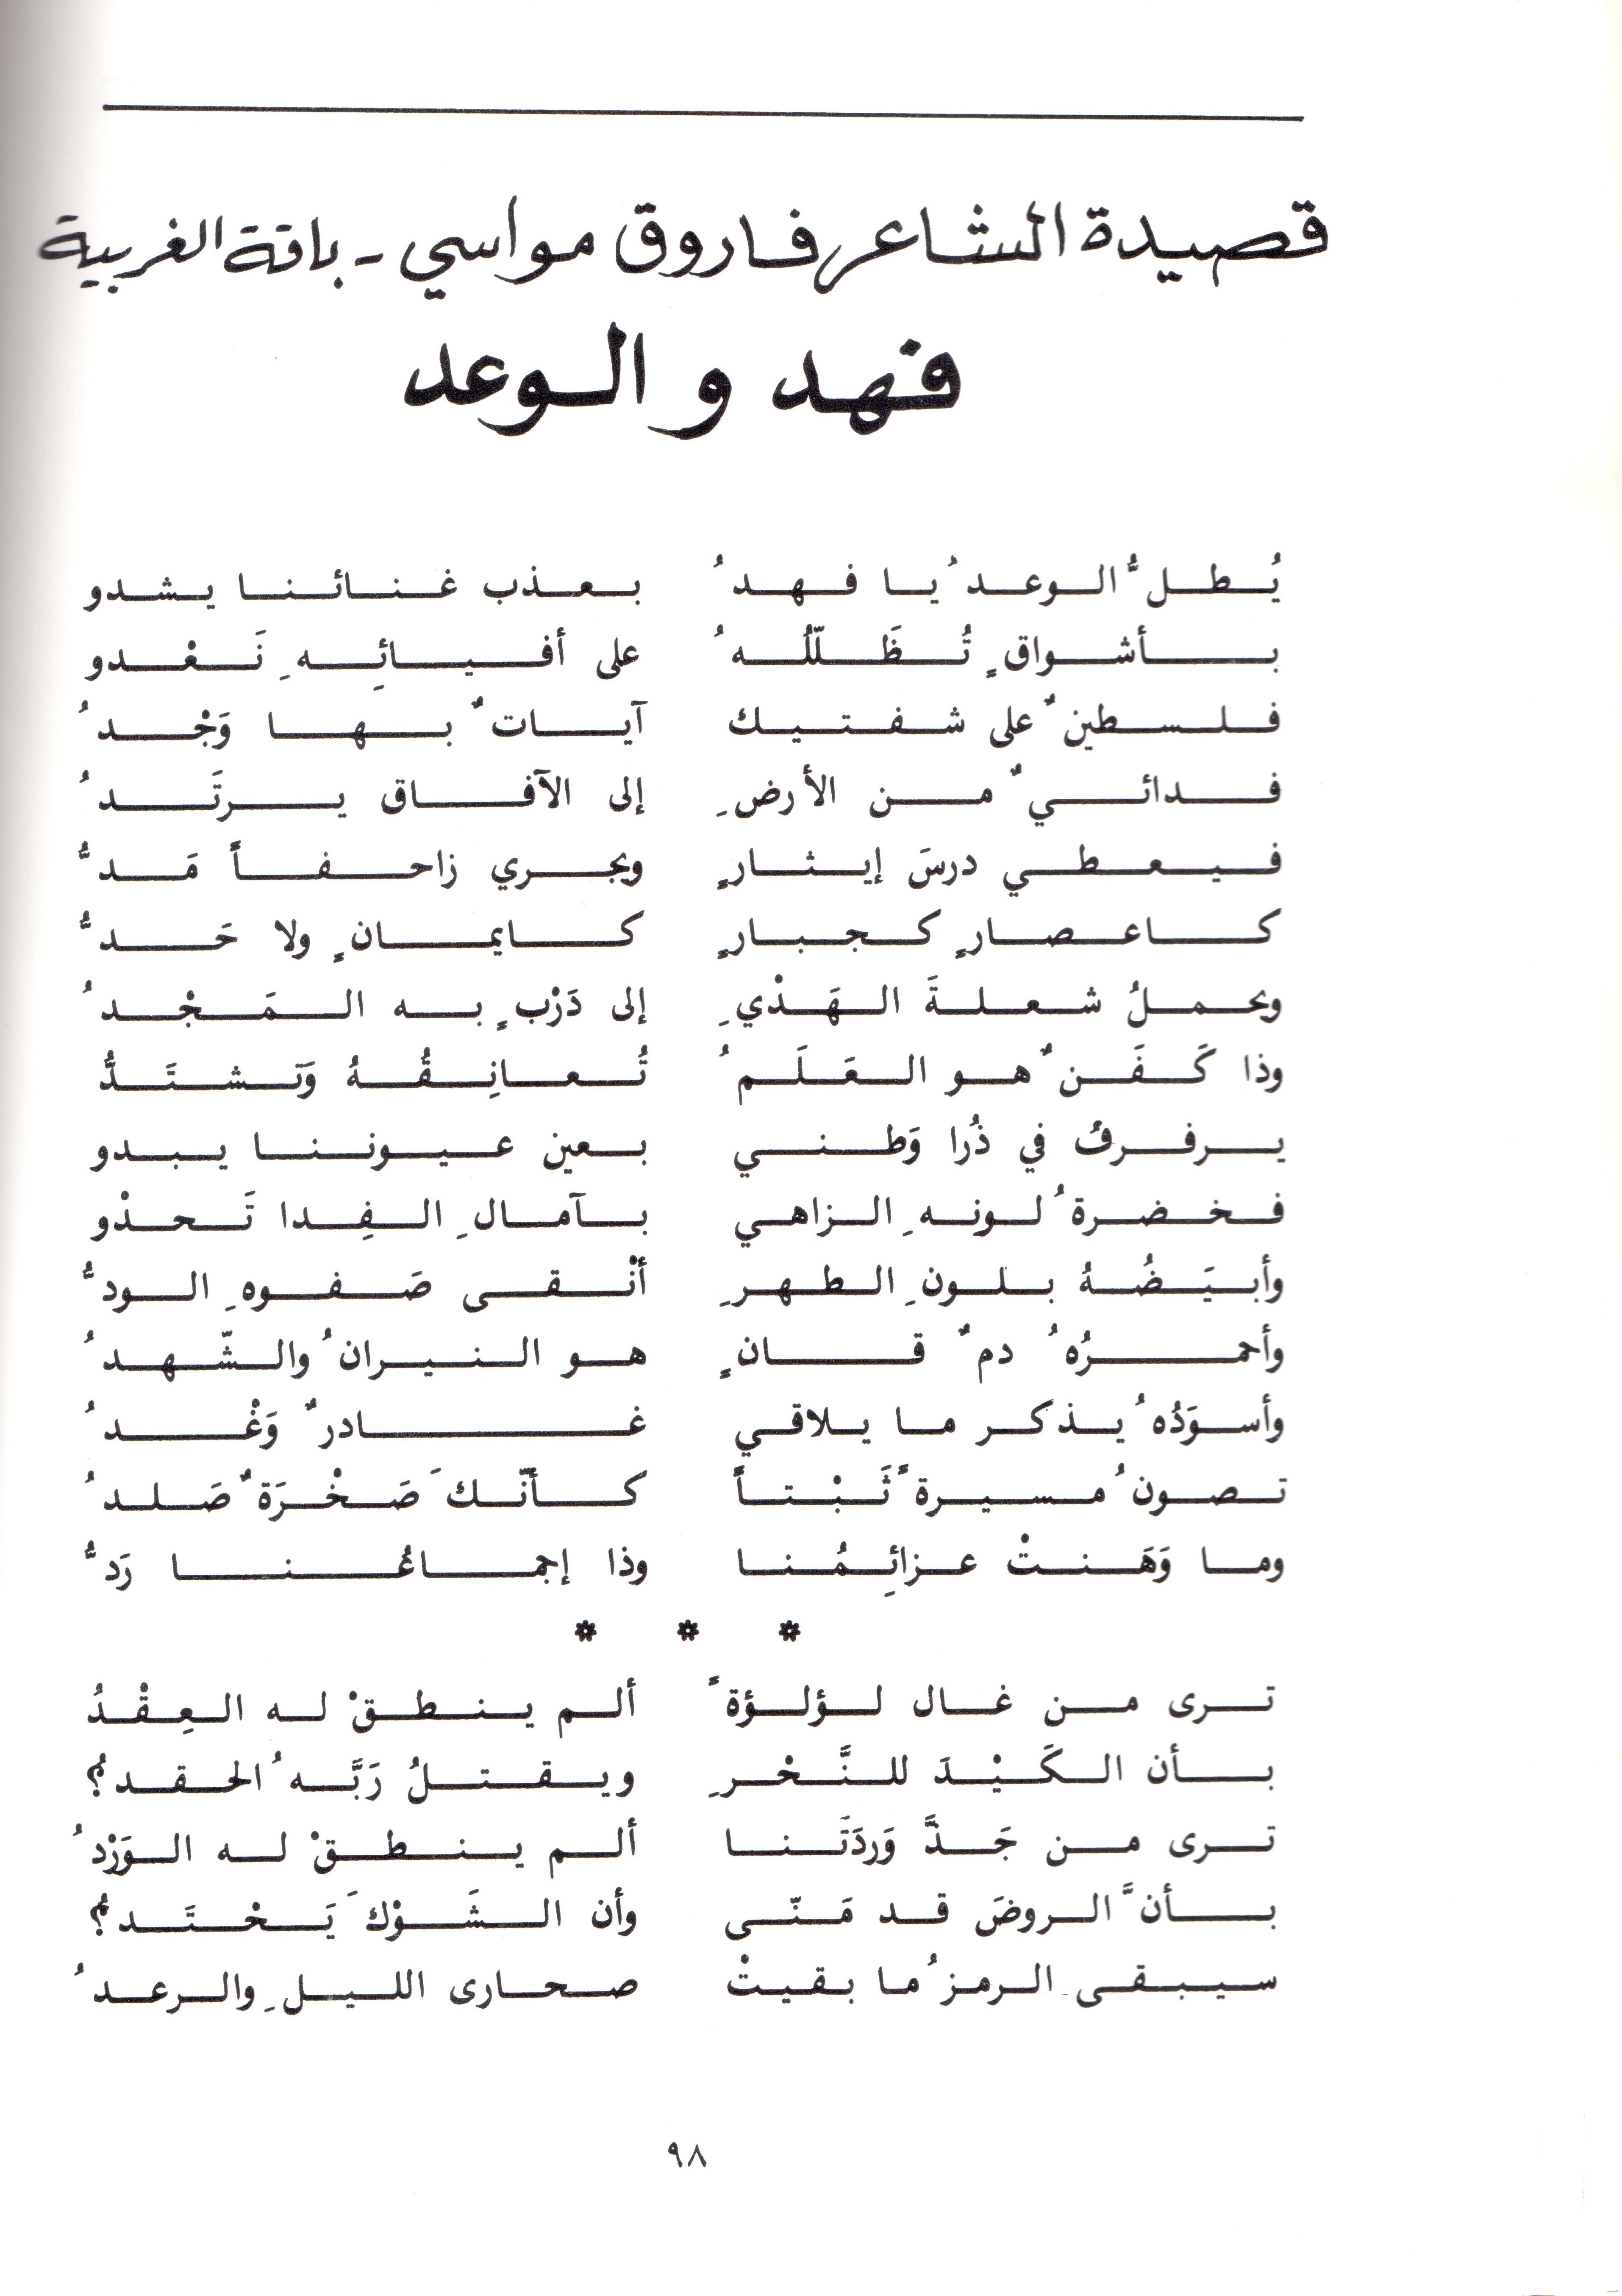 قصيدة الشاعر فاروق مواسي - باقة الغربية
فهد و الوعد
يُطلُّ الوعدُ يا فهدُ بعذب غنائنا يشدو
بأشواقٍ تُظَلّلُهُ على أفيائِهِ نَغْدو
فلسطينٌ على شفتيك آياتٌ بها وَجْدُ
فدائيٌ من الأرضِ إلى الآفاق يرتَدُ
فيعطي درسَ إيثارٍ ويجري زاحفاً مَدُّ
كاعصارٍ كجبارٍ كايمانٍ ولا حَدُّ
ويحملُ شعلةَ الهَدْيِ إلى دَرْبٍ به المَجْدُ
وذا كَفَنٌ هو العَلَمُ تُعانِقُهُ وَتشتَدُّ
يرفرفُ في ذُرا وَطني بعين عيوننا يبدو
فخضرةُ لونهِ الزاهي بآمالِ الفِدا تَحدْو
وأبيَضُهُ بلونِ الطهرِ أنْقى صَفوهِ الودُّ
وأحمرُهُ دمٌ قانٍ هو النيرانُ والشّهدُ
وأسوَدُهُ يذكر ما يلاقي غادرٌ وَغْدُ
تصونُ مسيرةً ثَبْتاً كأنّكَ صَخْرَةٌ صَلدُ
وما وَهَنتْ عزائِمُنا وذا إجماعُنا رَدُّ
* * *
ترى من غال لؤلؤةً ألم ينطقْ له العِقْدُ
بأن الكَيْدَ للنَّحْرِ ويقتلُ رَبَّهُ الحقد؟
ترى من جَذَّ وَردَتَنا ألم ينطقْ له الوَرْدُ
بأنَّ الروضَ قد مَنّى وأن الشَوْكَ يَحْتَدُ؟
سيبقى الرمزُ ما بقيتْ صحارى الليلِ والرعدُ
٩٨